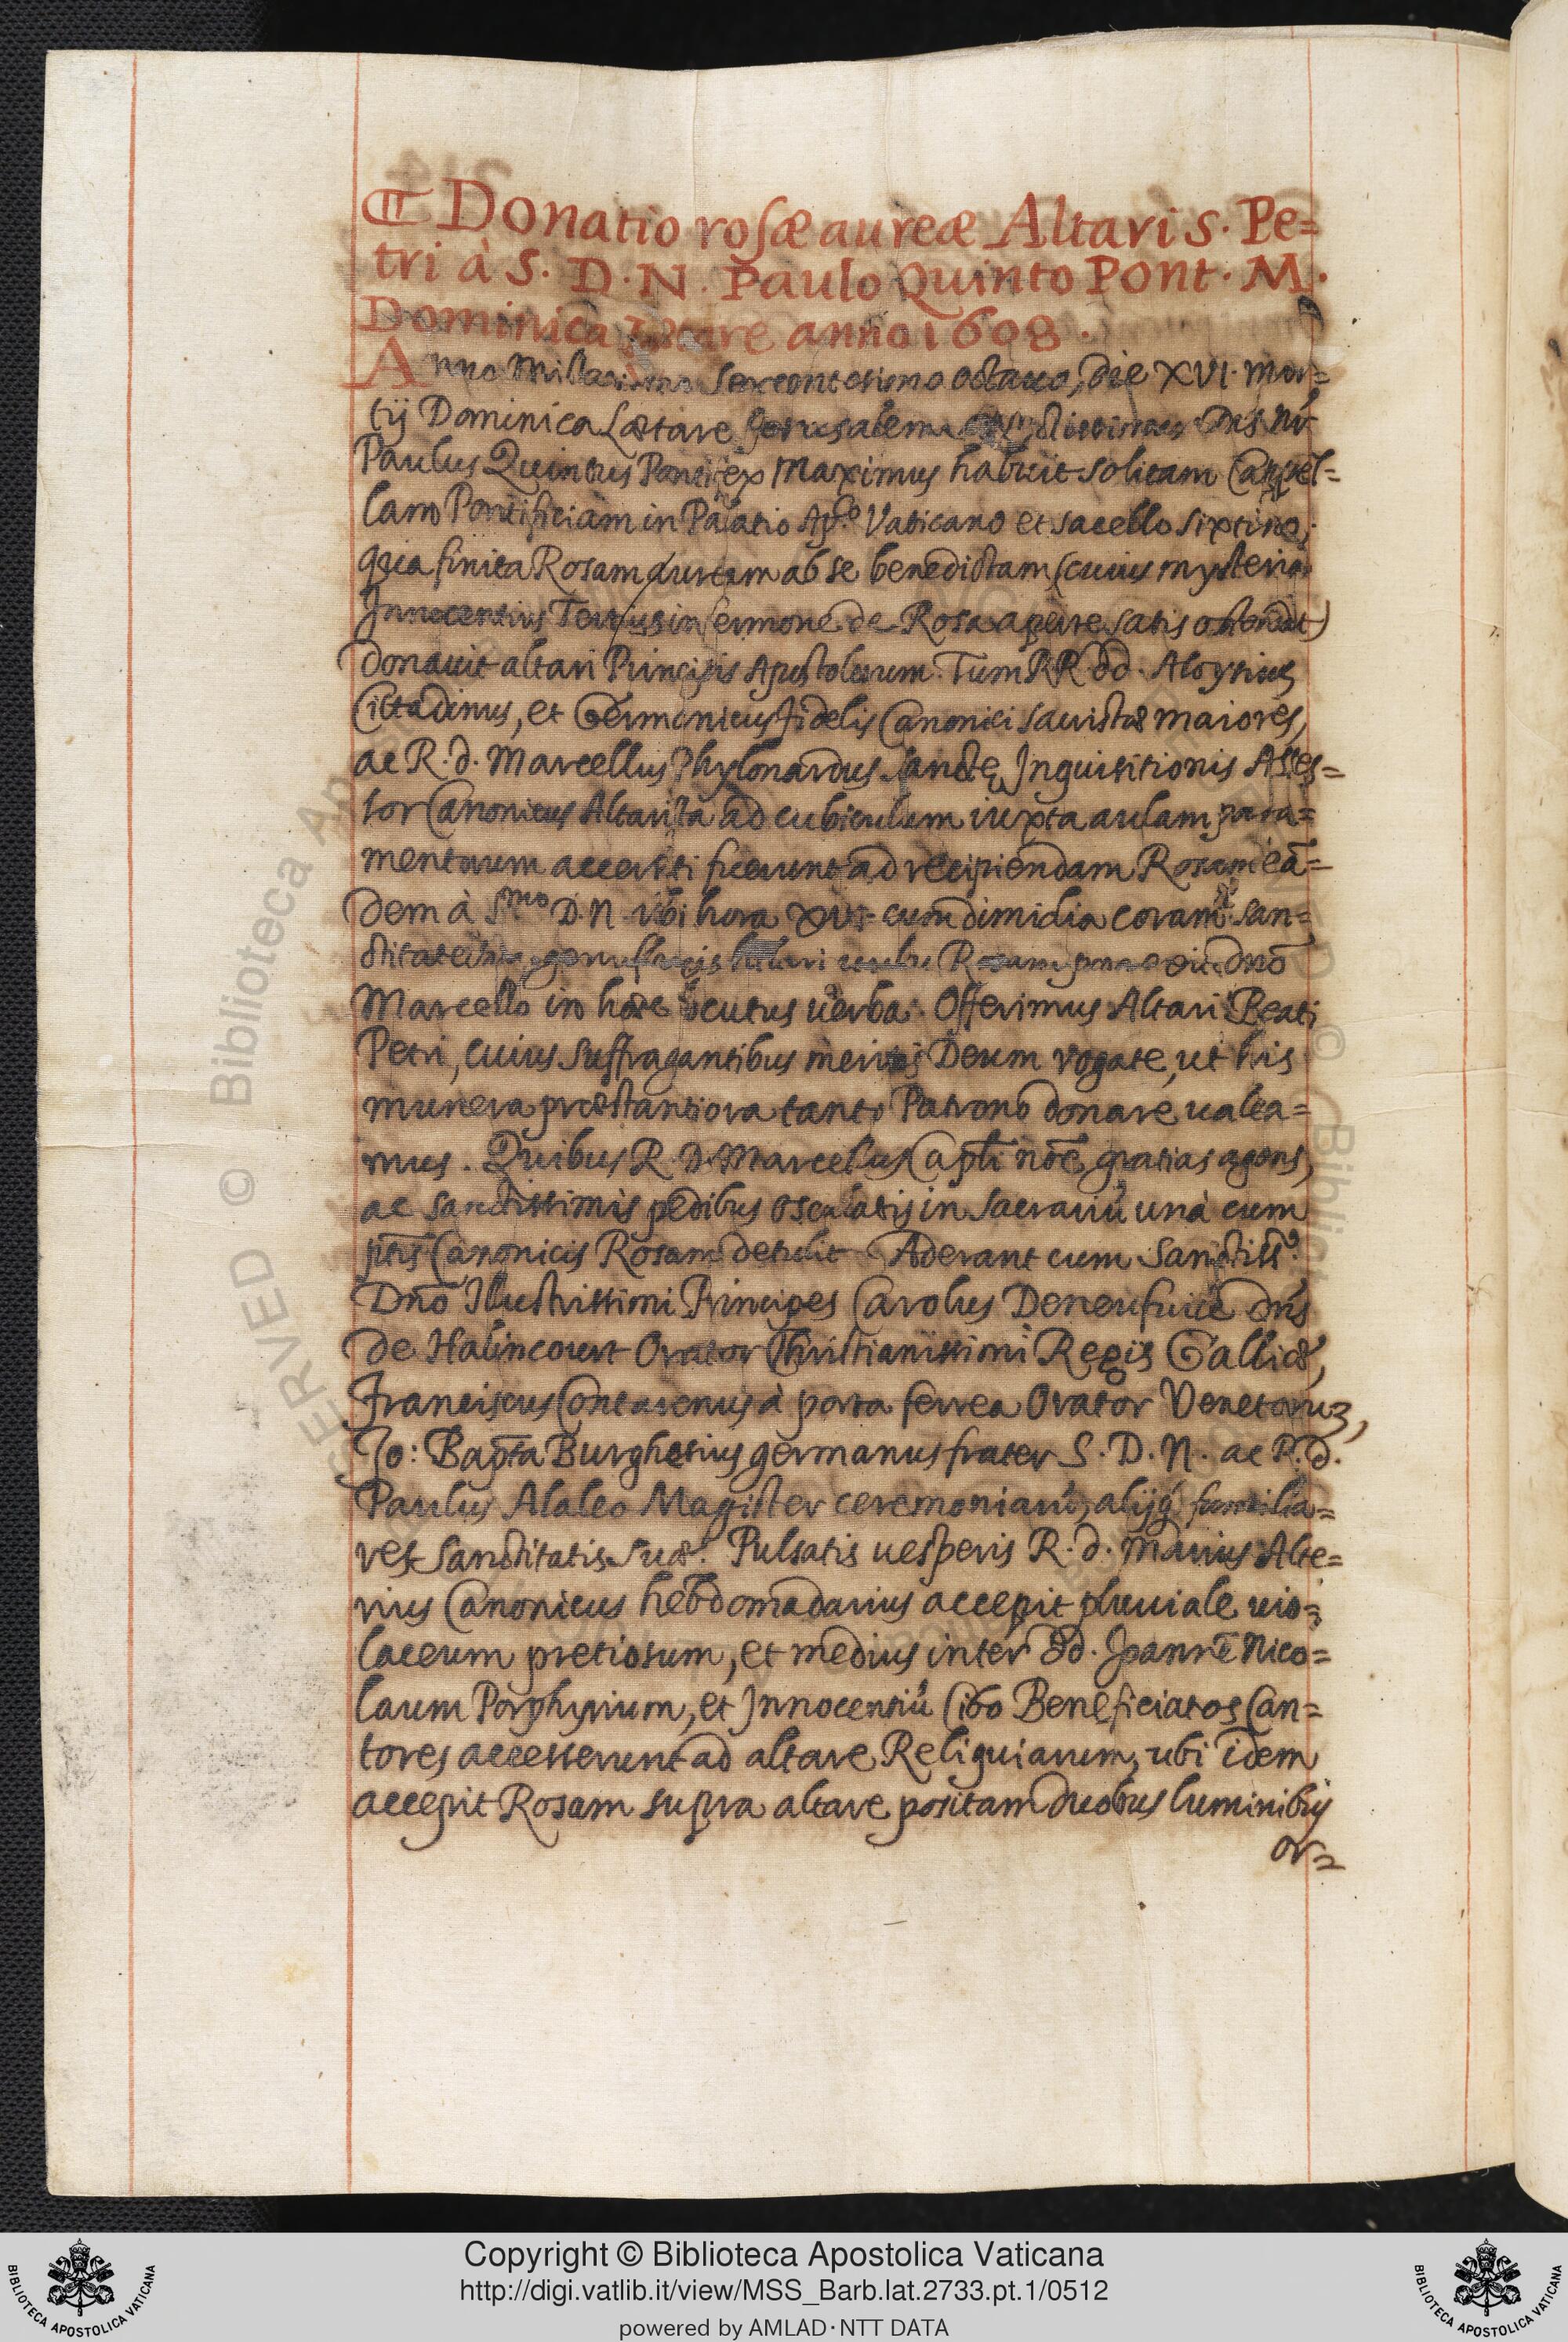 ¶ Donatio rosæ aureæ Altari S. Pe=
tri à S. D. N. Paulo Quinto Pont. M.
Dominica Lætare anno 1608.
Anno Millesimo sexcentesimo octauo, die XVI. mar=
tij Dominica Lætare Jerusalem Dn̄s nr̄
Paulus Quintus Pontifex Maximus habuit solitam Cappel=
lam Pontificiam in Palatio Ap.co Vaticano et sacello sixtino,
qua finita Rosam auream ab se benedictam (cuius mysteria
Innocentius Tertius in sermone de Rosa aperte satis ostendit)
donauit altari Principis Apostolorum. Tum RR dd. Aloysius
Cittadinus, et Germanicus fidelis Canonici sacristæ maiores,
ac R. d. Marcellus Phylonardus sanctę Inquisitionis Asses=
sor Canonicus Altarista ad cubiculum iuxta aulam para=
mentorum accersiti fuerunt ad recipiendam Rosam eā=
dem à S.mo D. N. ubi hora XVI. cum dimidia coram san=
ctitate sua genuflexis hilari uultu Rosam porrexit dnō
Marcello in hæc locutus uerba. Offerimus Altari Beati
Petri, cuius suffragantibus meritis Deum rogate, ut his
munera præstantiora tanto Patrono donare ualea=
mus. Quibus R. D. Marcellus Capli nōe gratias agens,
ac sanctissimis pedibus osculatis in sacrariū unà cum
ptis Canonicis Rosam detulit Aderant cum Sanctiss.o
Dnō Illustrissimi Principes Carolus Deneufuille dn̄s
de Halincourt Orator Christianissimi Regis Galliæ,
Franciscus Contarenus à porta ferrea Orator Venetoruȝ,
Jo: Bap̄ta Burghesius germanus frater S. D. N. ac R. d.
Paulus Alaleo Magister ceremoniarū, alijq́ familia=
res Sanctitatis suæ. Pulsatis uesperis R. d. Marius Alte=
rius Canonicus hebdomadarius accepit pluuiale uio=
laceum pretiosum, et medius inter dd. Joannē Nico=
laum Porphyrium, et Innocentiū Cibo Beneficiatos Can=
tores accesserunt ad altare Reliquiarum, ubi idem
accepit Rosam supra altare positam duobus luminibus
or=
Copyright © Biblioteca Apostolica Vaticana
http://digi.vatlib.it/view/MSS_Barb.lat.2733.pt.1/0512
powered by AMLAD·NTT DATA
BIBLIOTECA APOSTOLICA VATICANA
BIBLIOTECA APOSTOLICA VATICANA